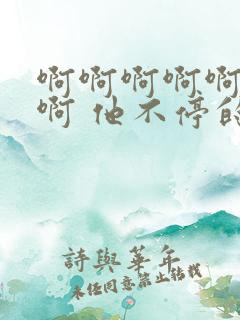 啊啊啊啊啊
啊 他不停的
詩與華年
未经同意禁止转载